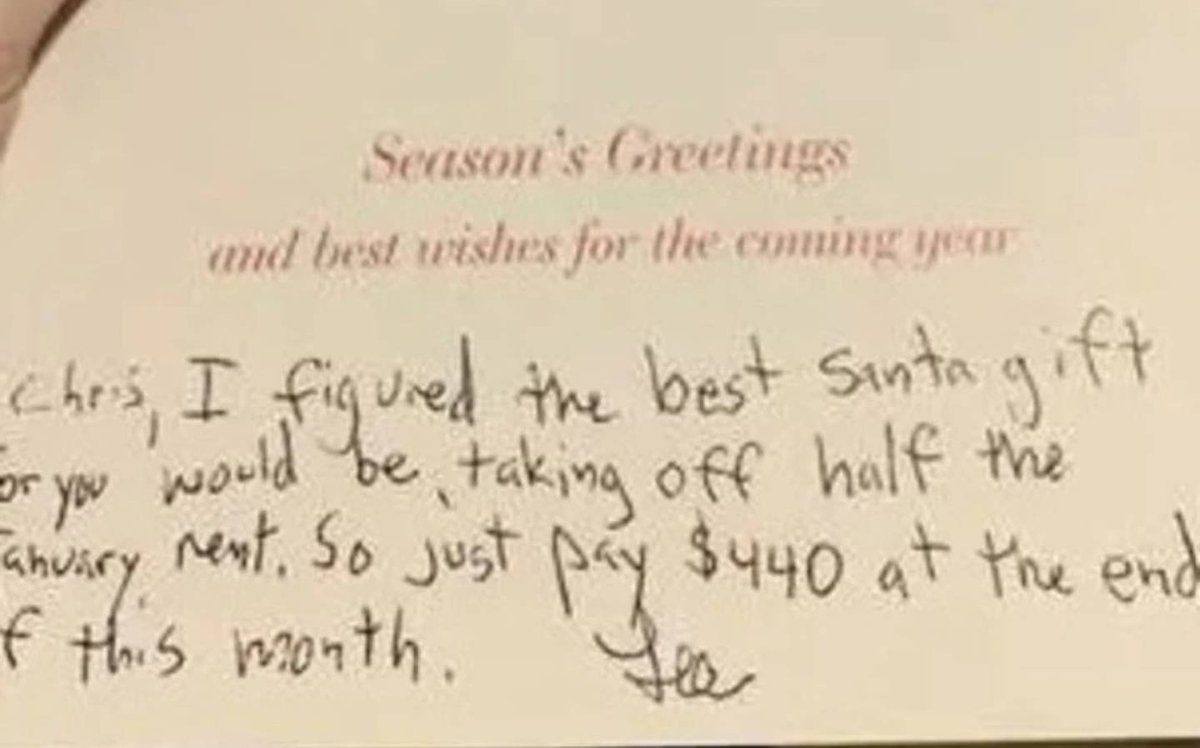 Season's Greetings
and best wishes for the coming year
Chris, I figured the best Santa gift
or you would be, taking off half the
January rent. So just pay $440 at the end
f this month. Lee